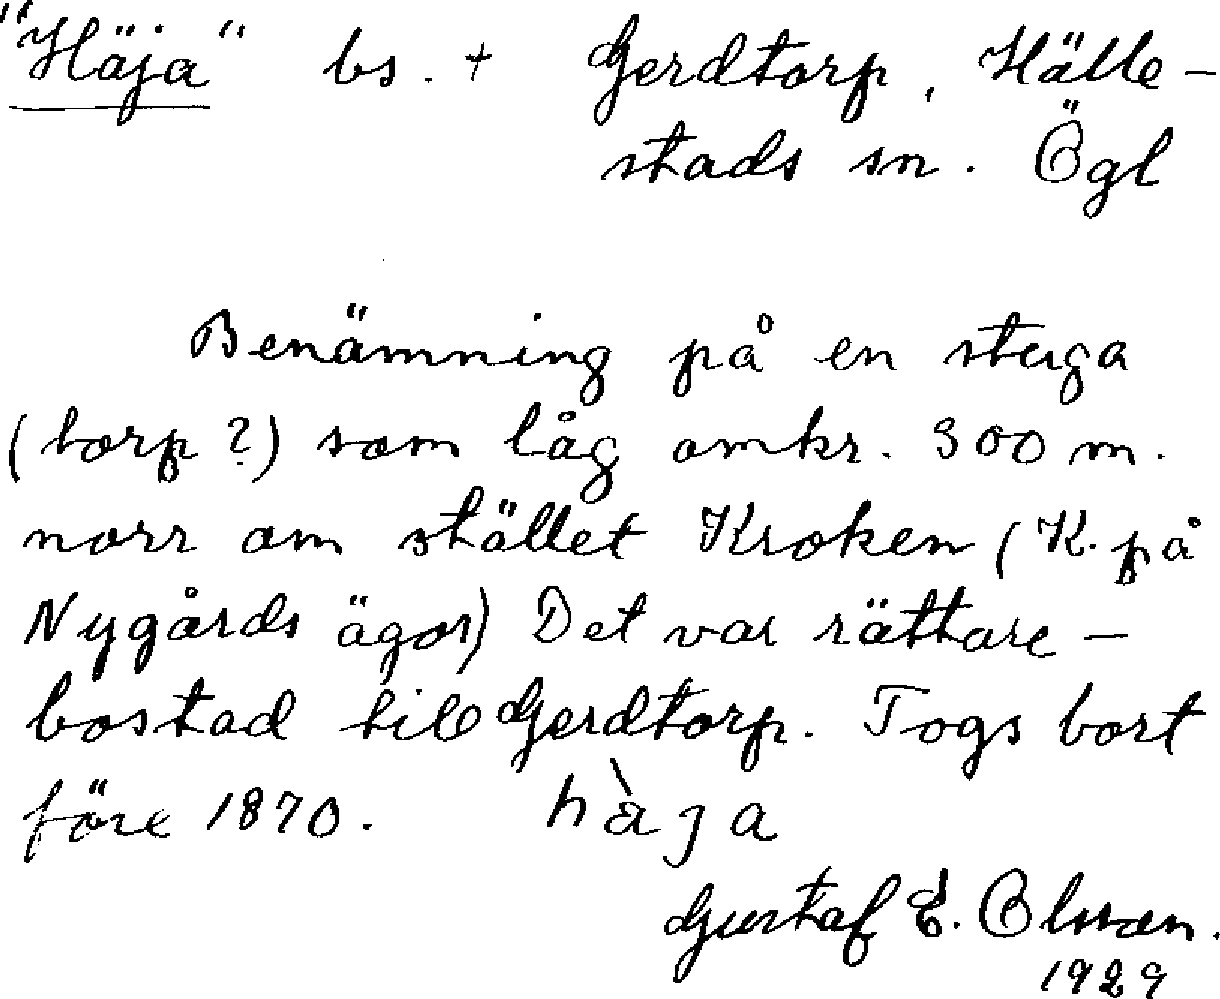 "Häja" bs. + Gerdtorp, Hälle-
stads sn. Ögl
Benämning på en stuga
(torp?) som låg omkr. 300 m.
norr om stället Kroken (K. på
Nygårds ägor) Det var rättare-
bostad till Gerdtorp. Togs bort
före 1870. hàja
Gustaf E. Olsson.
1929